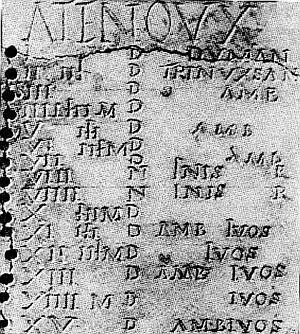 ATENOVX
D DVMAN
II D TRINVXSAN
III D AMB
IIII M D
V D AMB
VI M D
VII D AMB
VIII N INIS R
VIIII N INIS R
X M D
XI D AMB IVOS
XII M D IVOS
XIII D AMB IVOS
XIIII M D IVOS
XV D AMBIVOS